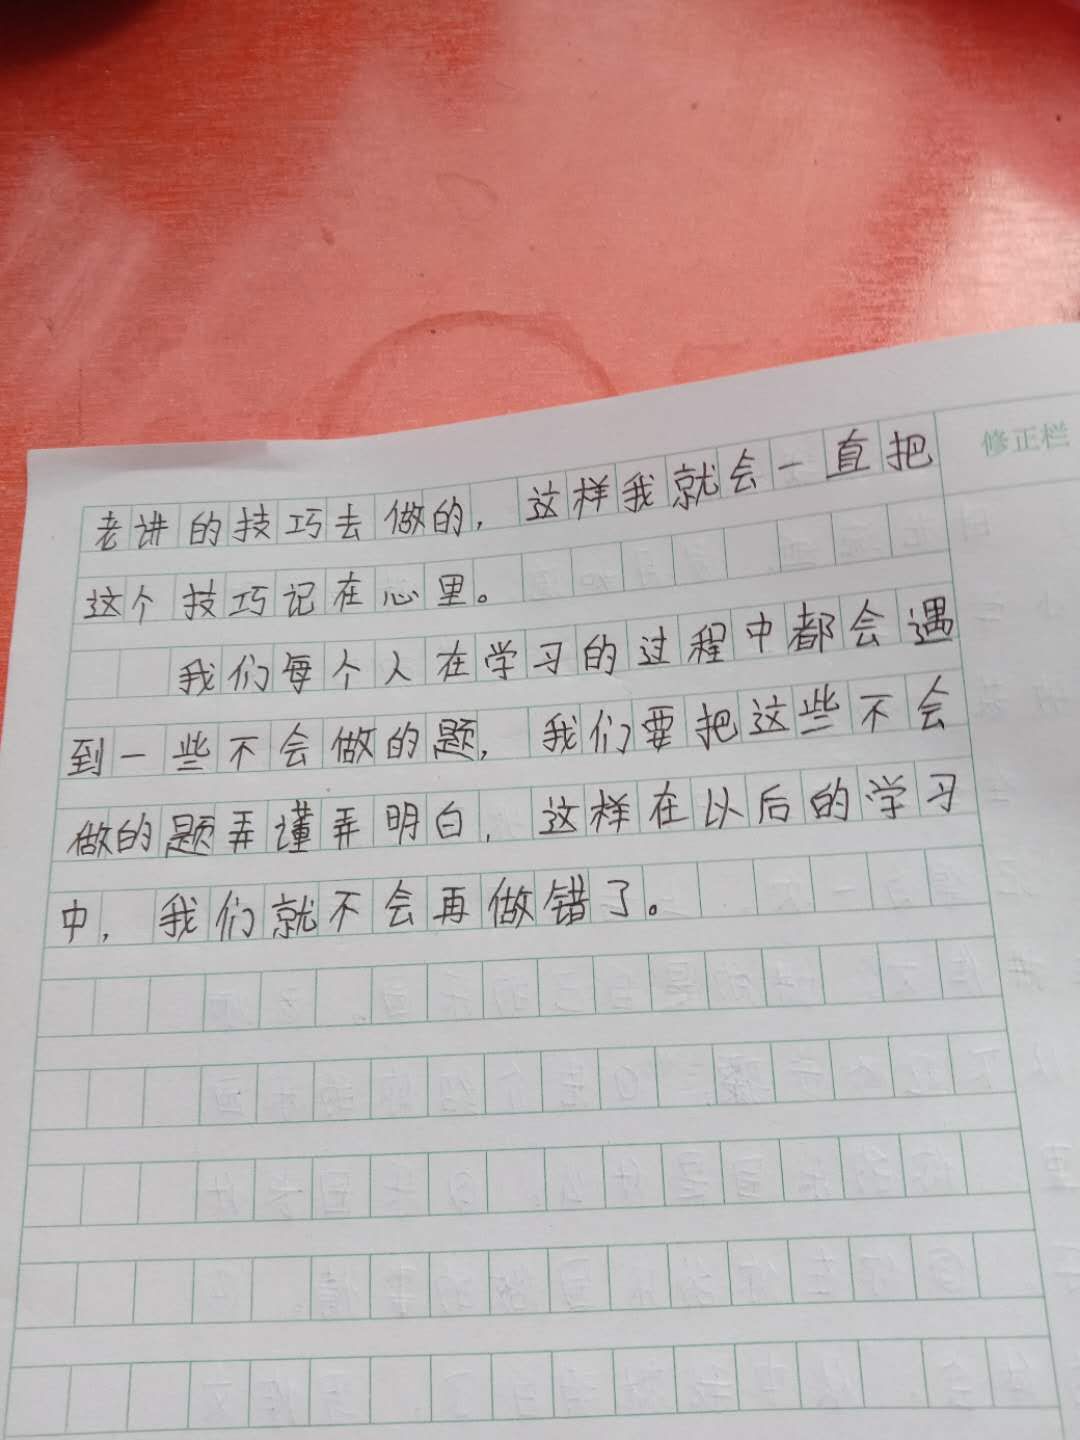 修正栏
老讲的技巧去做的，这样我就会一直把
这个技巧记在心里。
我们每个人在学习的过程中都会遇
到一些不会做的题，我们要把这些不会
做的题弄懂弄明白，这样在以后的学习
中，我们就不会再做错了。